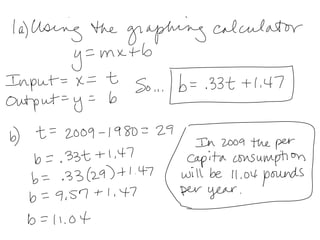 1a) Using the graphing calculator
y = mx + b
Input = x = t
Output = y = b
So... b = .33t + 1.47
b) t = 2009 - 1980 = 29
b = .33t + 1.47
b = .33(29) + 1.47
b = 9.57 + 1.47
b = 11.04
In 2009 the per
capita consumption
will be 11.04 pounds
per year.